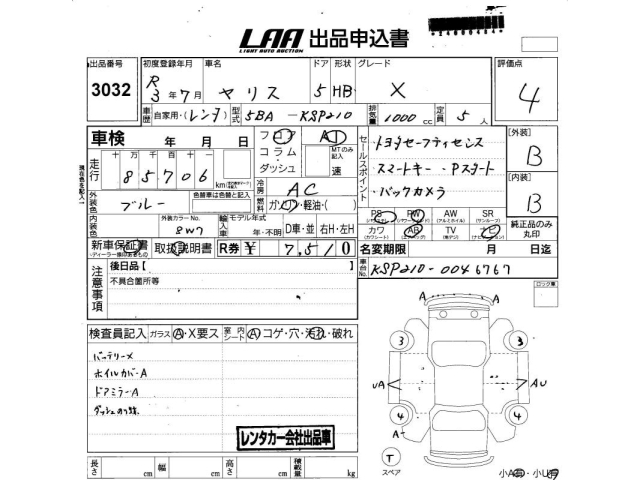 LAA 出品申込書
LIGHT AUTO AUCTION
出品番号 3032
初度登録年月 R3年7月
車名 ヤリス
ドア 5
形状 HB
グレード X
評価点 4
車歴 自家用・(レンタ)
型式 5BA-KSP210
排気量 1000 cc
定員 5 人
車検 年 月 日
フロア コラム・ダッシュ
AT
MTのみ記入
速
走行 十万 万 千 百 十 一
85706 km
セールスポイント
・トヨタセーフティセンス
・スマートキー・Pスタート
・バックカメラ
[外装] B
[内装] B
純正品のみ丸印
外装色 ブルー
色替車は色替と記入
冷房 AC
燃料 ガソリン・軽油・( )
内装色
外装カラーNo. 8W7
輸入車 モデル年式
年・不明
D車・並 右H・左H
PS PW AW SR
(パワーステアリング) (パワーウィンドウ) (アルミホイル) (サンルーフ)
カワ AB TV ナビ
(カワシート) (エアバッグ)
新車保証書
・ディーラー様印あるもの
取扱説明書
R券 ¥ 7,510
名変期限 月 日迄
車台No. KSP210-0046767
注意事項
後日品 [ ]
不具合箇所等
ロック葉
検査員記入 ガラス Ⓐ・X要ス
室内シート Ⓐ コゲ・穴・汚れ・破れ
バッテリーX
ホイルカバーA
ドアミラーA
A A
3 3
UA AU
4 4
A
T
スペア
レンタカー会社出品車
長さ cm 幅 cm 高さ cm 積載量 kg
現在色を記入